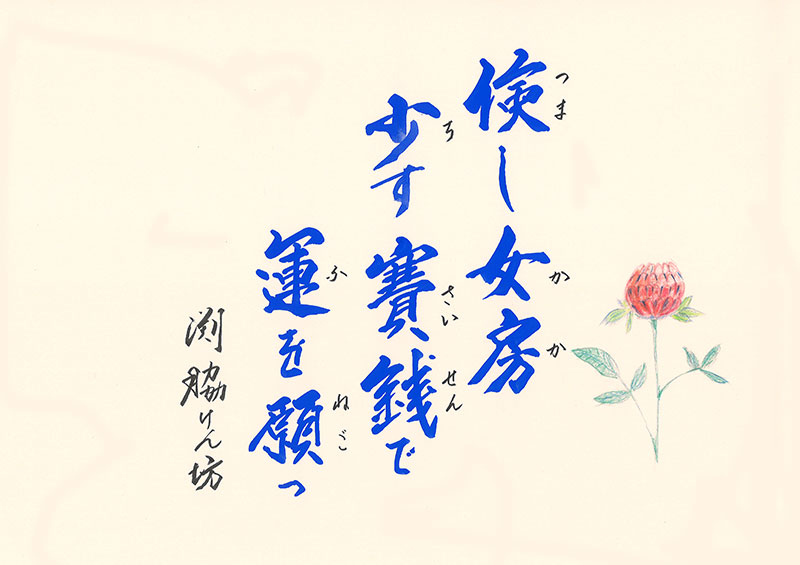 倹し女房
つま
かか
少す賽銭で
ろ
さいせん
運を願っ
ふ
ねご
渕脇けん坊